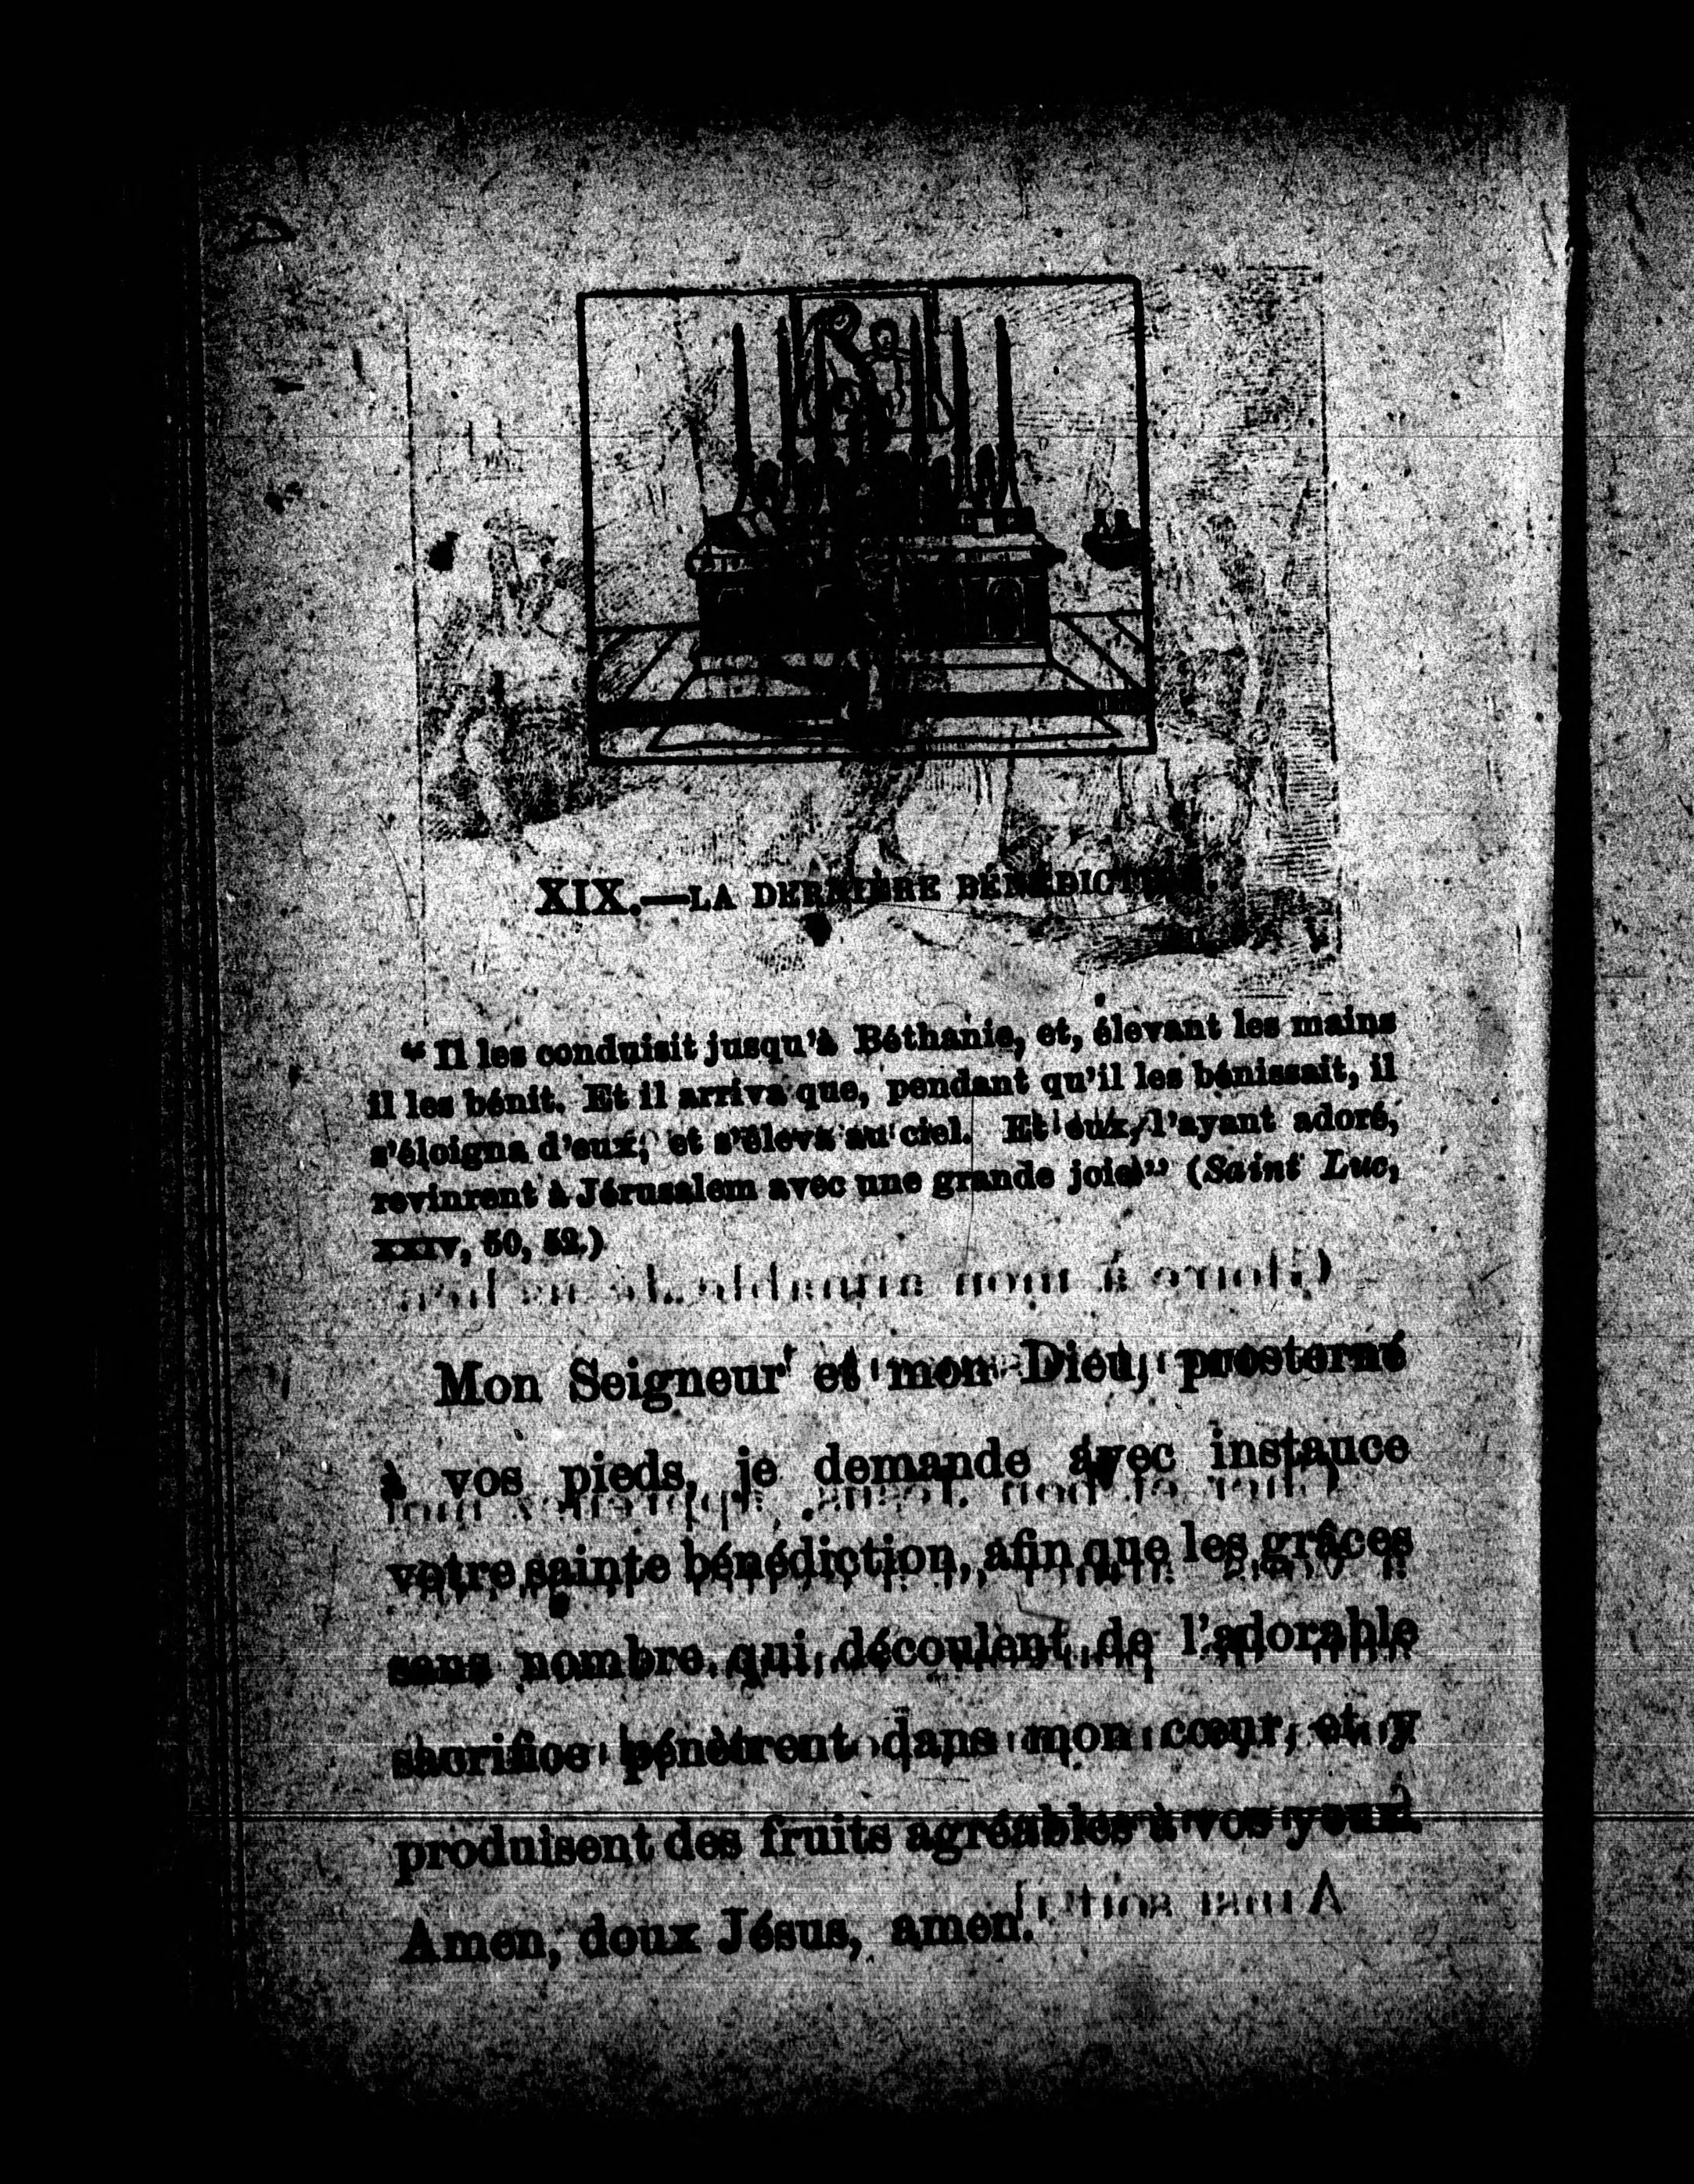 XIX.—LA DERNIÈRE BÉNÉDICTION.
“ Il les conduisit jusqu’à Béthanie, et, élevant les mains
il les bénit. Et il arriva que, pendant qu’il les bénissait, il
s’éloigna d’eux, et s’éleva au ciel. Et eux, l’ayant adoré,
revinrent à Jérusalem avec une grande joie.” (Saint Luc,
XXIV, 50, 52.)
Mon Seigneur et mon Dieu, prosterné
à vos pieds, je demande avec instance
votre sainte bénédiction, afin que les grâces
sans nombre qui découlent de l’adorable
sacrifice pénètrent dans mon cœur, et y
produisent des fruits agréables à vos yeux.
Amen, doux Jésus, amen.